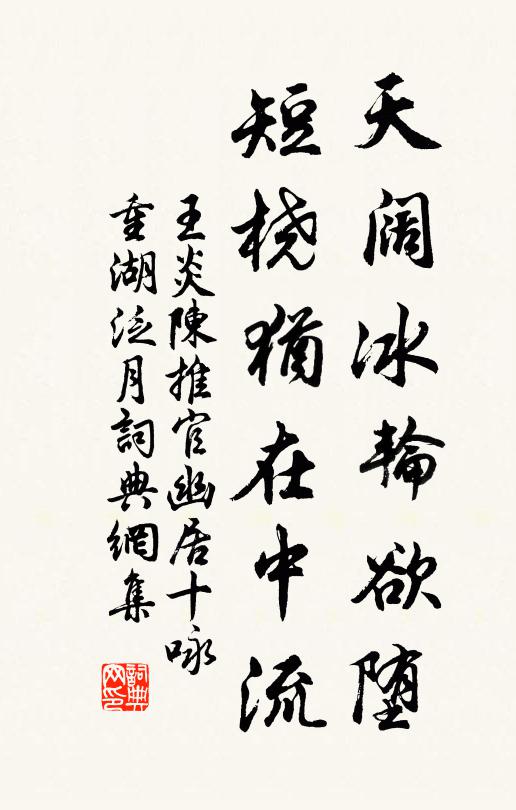 天阔冰輪欲堕
短桡猶在中流
王炎陳推官幽居十咏
重湖泛月詞典網集
詞典网印